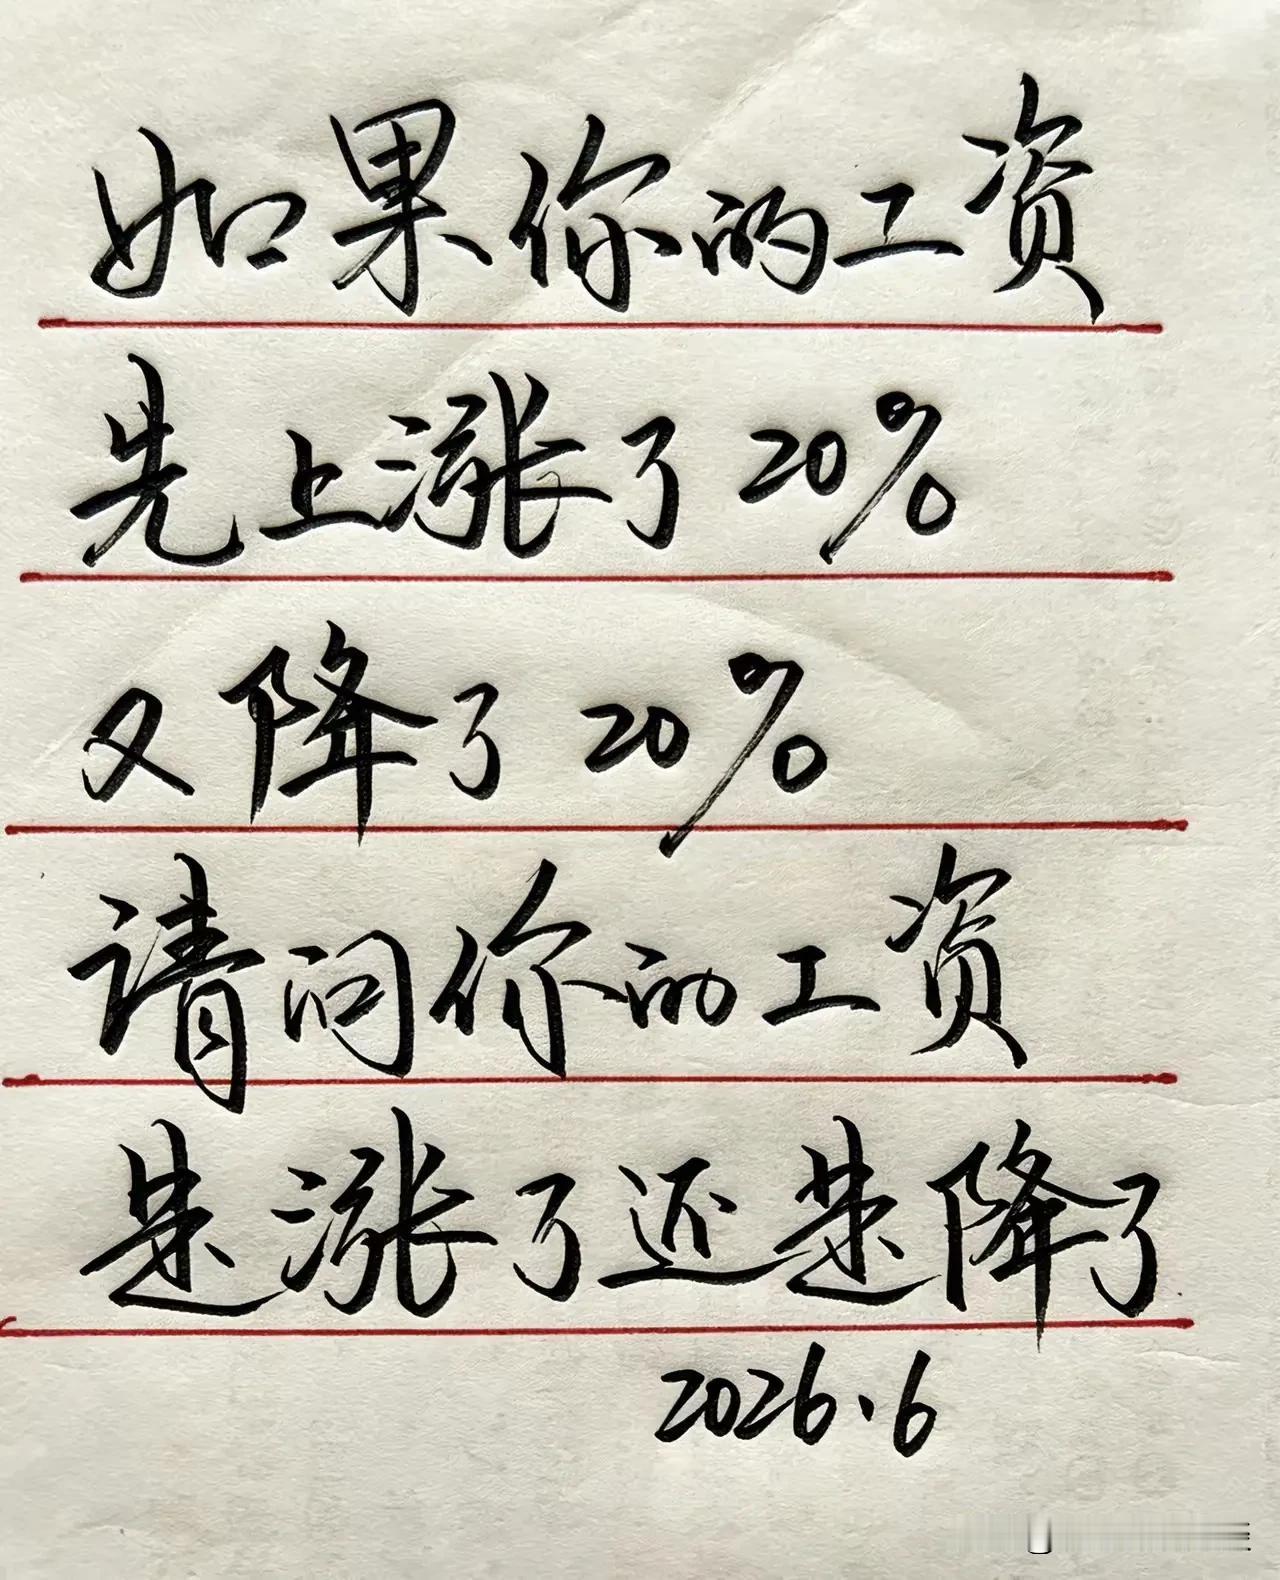 如果你的工资
先上涨了20%
又降了20%
请问你的工资
是涨了还是降了
2026.6